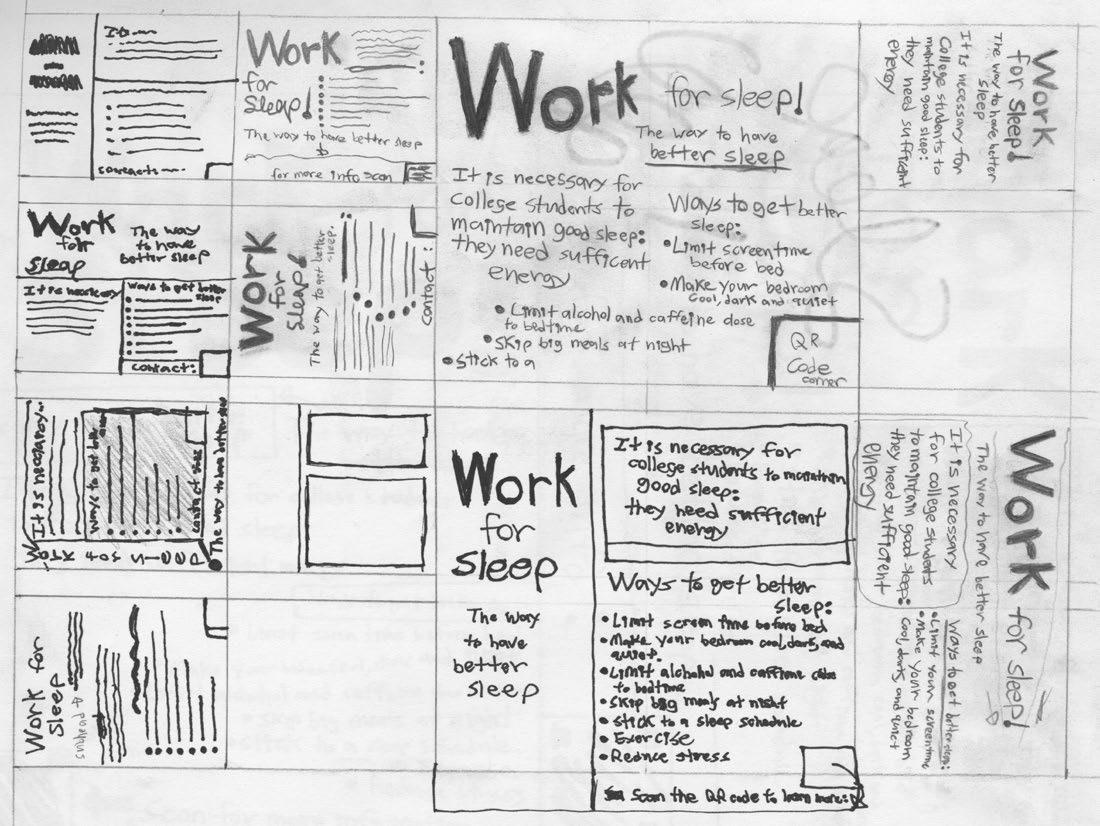 It is
contacts
Work
for
Sleap!
The way to have better sleep
for more info scan
Work
for
Sleap
The way
to have
better sleep
It is necessary
Ways to get better
sleep
contact:
Work
for
Sleap!
The way to get better
sleep.
contact:
It is necessary
Ways to get better
contact
The way to have better
Work for
Sleep
Work
for sleep!
The way to have
better sleep
It is necessary for
college students to
maintain good sleep:
they need sufficent
energy
Ways to get better
sleep:
•Limit screentime
before bed
•Make your bedroom
cool, dark and quiet
•Limit alcohol and caffeine close
to bedtime
•Skip big meals at night
•Stick to a
QR
Code
corner
Work
for
Sleep
The way
to have
better
sleep
It is necessary for
college students to maintain
good sleep:
they need sufficient
energy
Ways to get better
sleep:
•Limit screen time before bed
•Make your bedroom cool, dark, and
quiet.
•Limit alchohol and caffeine close
to bedtime
•Skip big meals at night
•Stick to a sleep schedule
•Exercise
•Reduce stress
Scan the QR code to learn more:
Work
for sleep!
The way to have better
sleep
It is necessary for
college students to
maintain good sleep:
they need sufficent
energy
Work for sleep!
The way to have better sleep
It is necessary
for college students
to maintain good sleep:
they need sufficient
energy
Ways to get better sleep:
•Limit your screentime
•Make your bedroom
cool, dark, and quiet